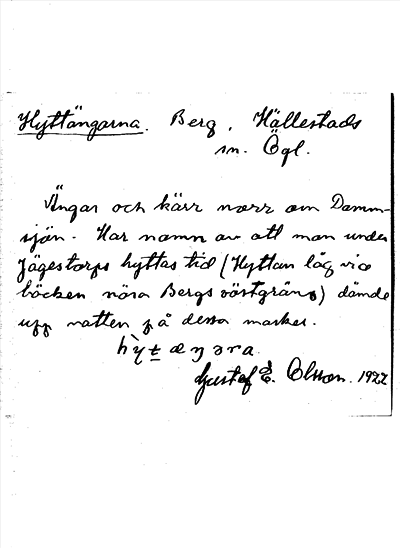 Hyttängarna. Berg, Hällestads
sn. Ögl.
Ängar och kärr norr om Damm-
sjön. Har namn av att man under
Jägestorps hyttas tid (Hyttan låg vid
bäcken nära Bergs västgräns) dämde
upp vatten på dessa marker.
hỳtæŋəra
Gustaf E. Olsson. 1922